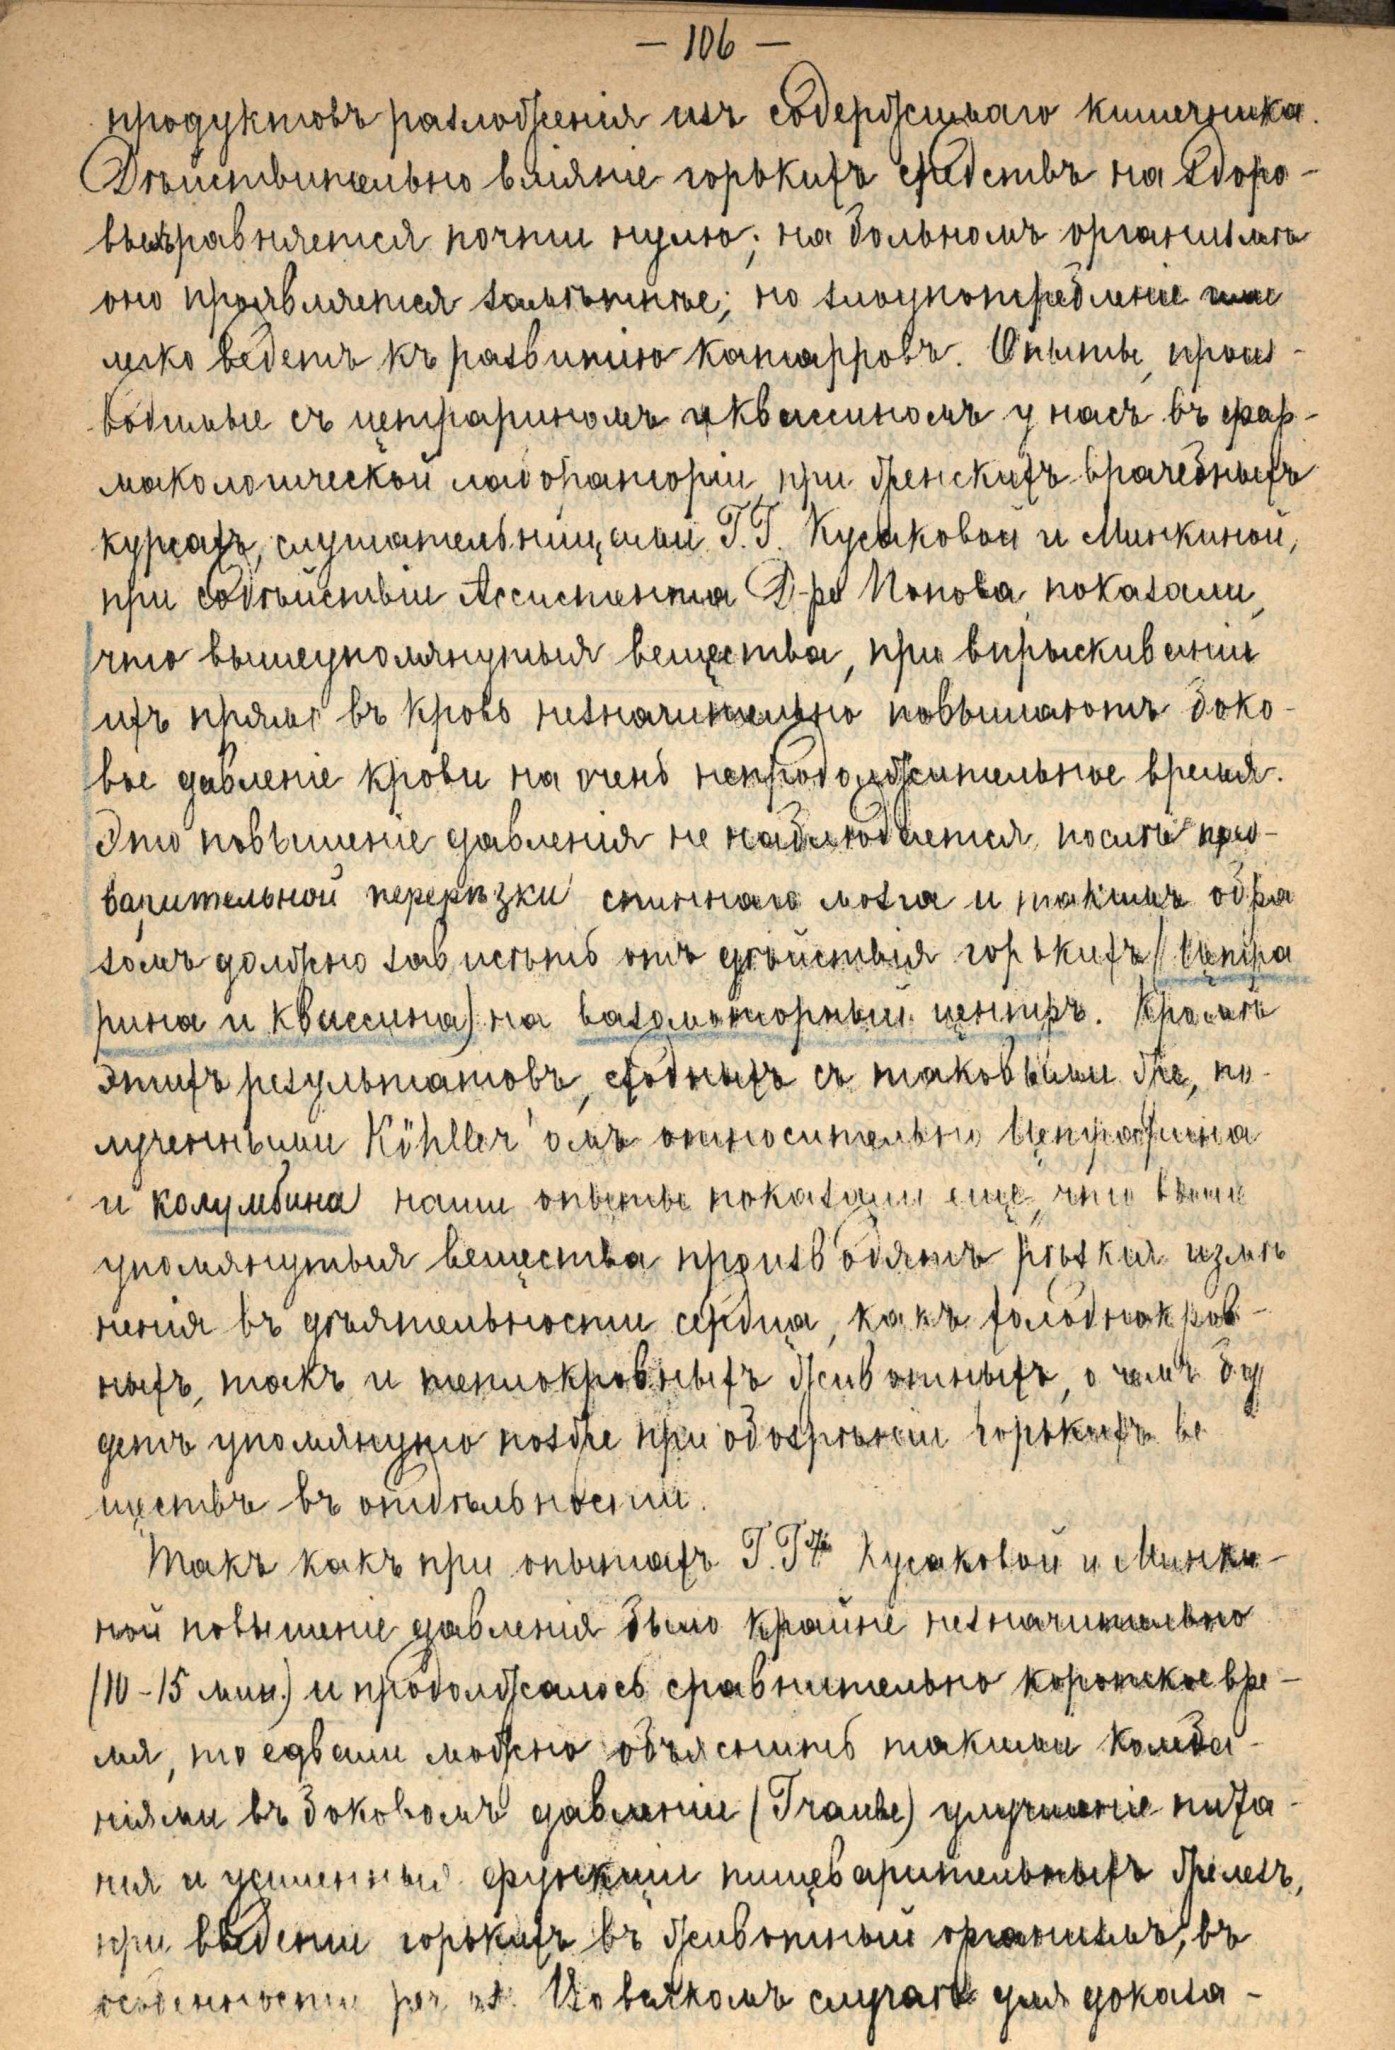 — 106 —
продуктовъ разложенія изъ содержимаго кишечника.
Дѣйствительно вліяніе горькихъ средствъ на здоро-
выхъ равняется почти нулю; на больномъ организмѣ
оно проявляется замѣтнѣе; но злоупотребленіе ими
легко ведетъ къ развитію катарровъ. Опыты, произ-
водимые съ цетрариномъ и квассиномъ у насъ въ фар-
макологической лабораторіи при женскихъ врачебныхъ
курсахъ, слушательницами Г.Г. Кусаковой и Минкиной,
при содѣйствіи Ассистента Д-ра Попова, показали,
что вышеупомянутыя вещества, при впрыскиваніи
ихъ прямо въ кровь незначительно повышаютъ боко-
вое давленіе крови на очень непродолжительное время.
Это повышеніе давленія не наблюдается послѣ пред-
варительной перерѣзки спиннаго мозга и такимъ обра
зомъ должно зависѣть отъ дѣйствія горькихъ (Цетра
рина и Квассина) на вазомоторный центръ. Кромѣ
этихъ результатовъ, сходныхъ съ таковыми же, по-
лученными Köhller'омъ относительно Цетрарина
и колумбина наши опыты показали еще, что выше
упомянутыя вещества производятъ рѣзкія измѣ
ненія въ дѣятельности сердца, какъ холоднокров-
ныхъ, такъ и теплокровныхъ животныхъ, о чемъ бу
детъ упомянуто позже при обозрѣніи горькихъ ве
ществъ въ отдѣльности.
Такъ какъ при опытахъ Г.Г. Кусаковой и Минки-
ной повышеніе давленія было крайне незначительно
(10-15 мин.) и продолжалось сравнительно короткое вре-
мя, то едвали можно объяснить такими колеба-
ніями въ боковомъ давленіи (Traube) улучшеніе пита-
нія и усиленный функціи пищеварительныхъ железъ,
при введеніи горькихъ въ животный организмъ, въ
особенности per os. Во всякомъ случаѣ для доказа-